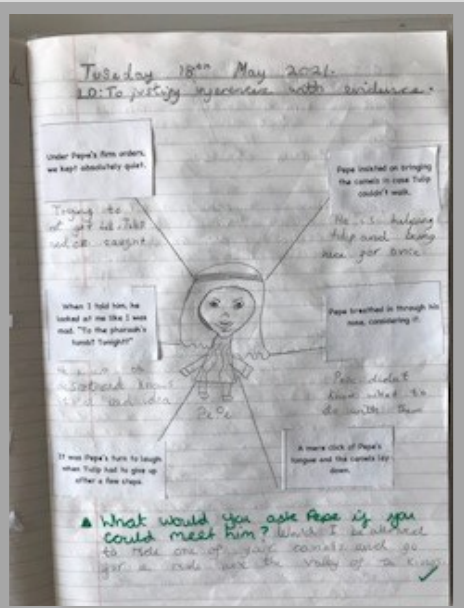 Tuseday 18th May 2021.
LO: To justify inferences with evidence.
Under Pepe's firm orders,
we kept absolutely quiet.
Trying to
get caught
Pepe insisted on bringing
the camels in case Tulip
couldn't walk.
He is helping
tulip and being
nice for once
When I told him, he
looked at me like I was
mad. "To the pharaoh's
tombs? Tonight?"
bad idea
Pepe breathed in through his
nose, considering it.
Pepe didn't
know what to
do with them
Pepe
It was Pepe's turn to laugh
when Tulip had to give up
after a few steps.
A mere click of Pepe's
tongue and the camels lay
down.
What would you ask Pepe if you
could meet him? Would I be allowed
to ride one of your camels and go
for a the valley of the kings